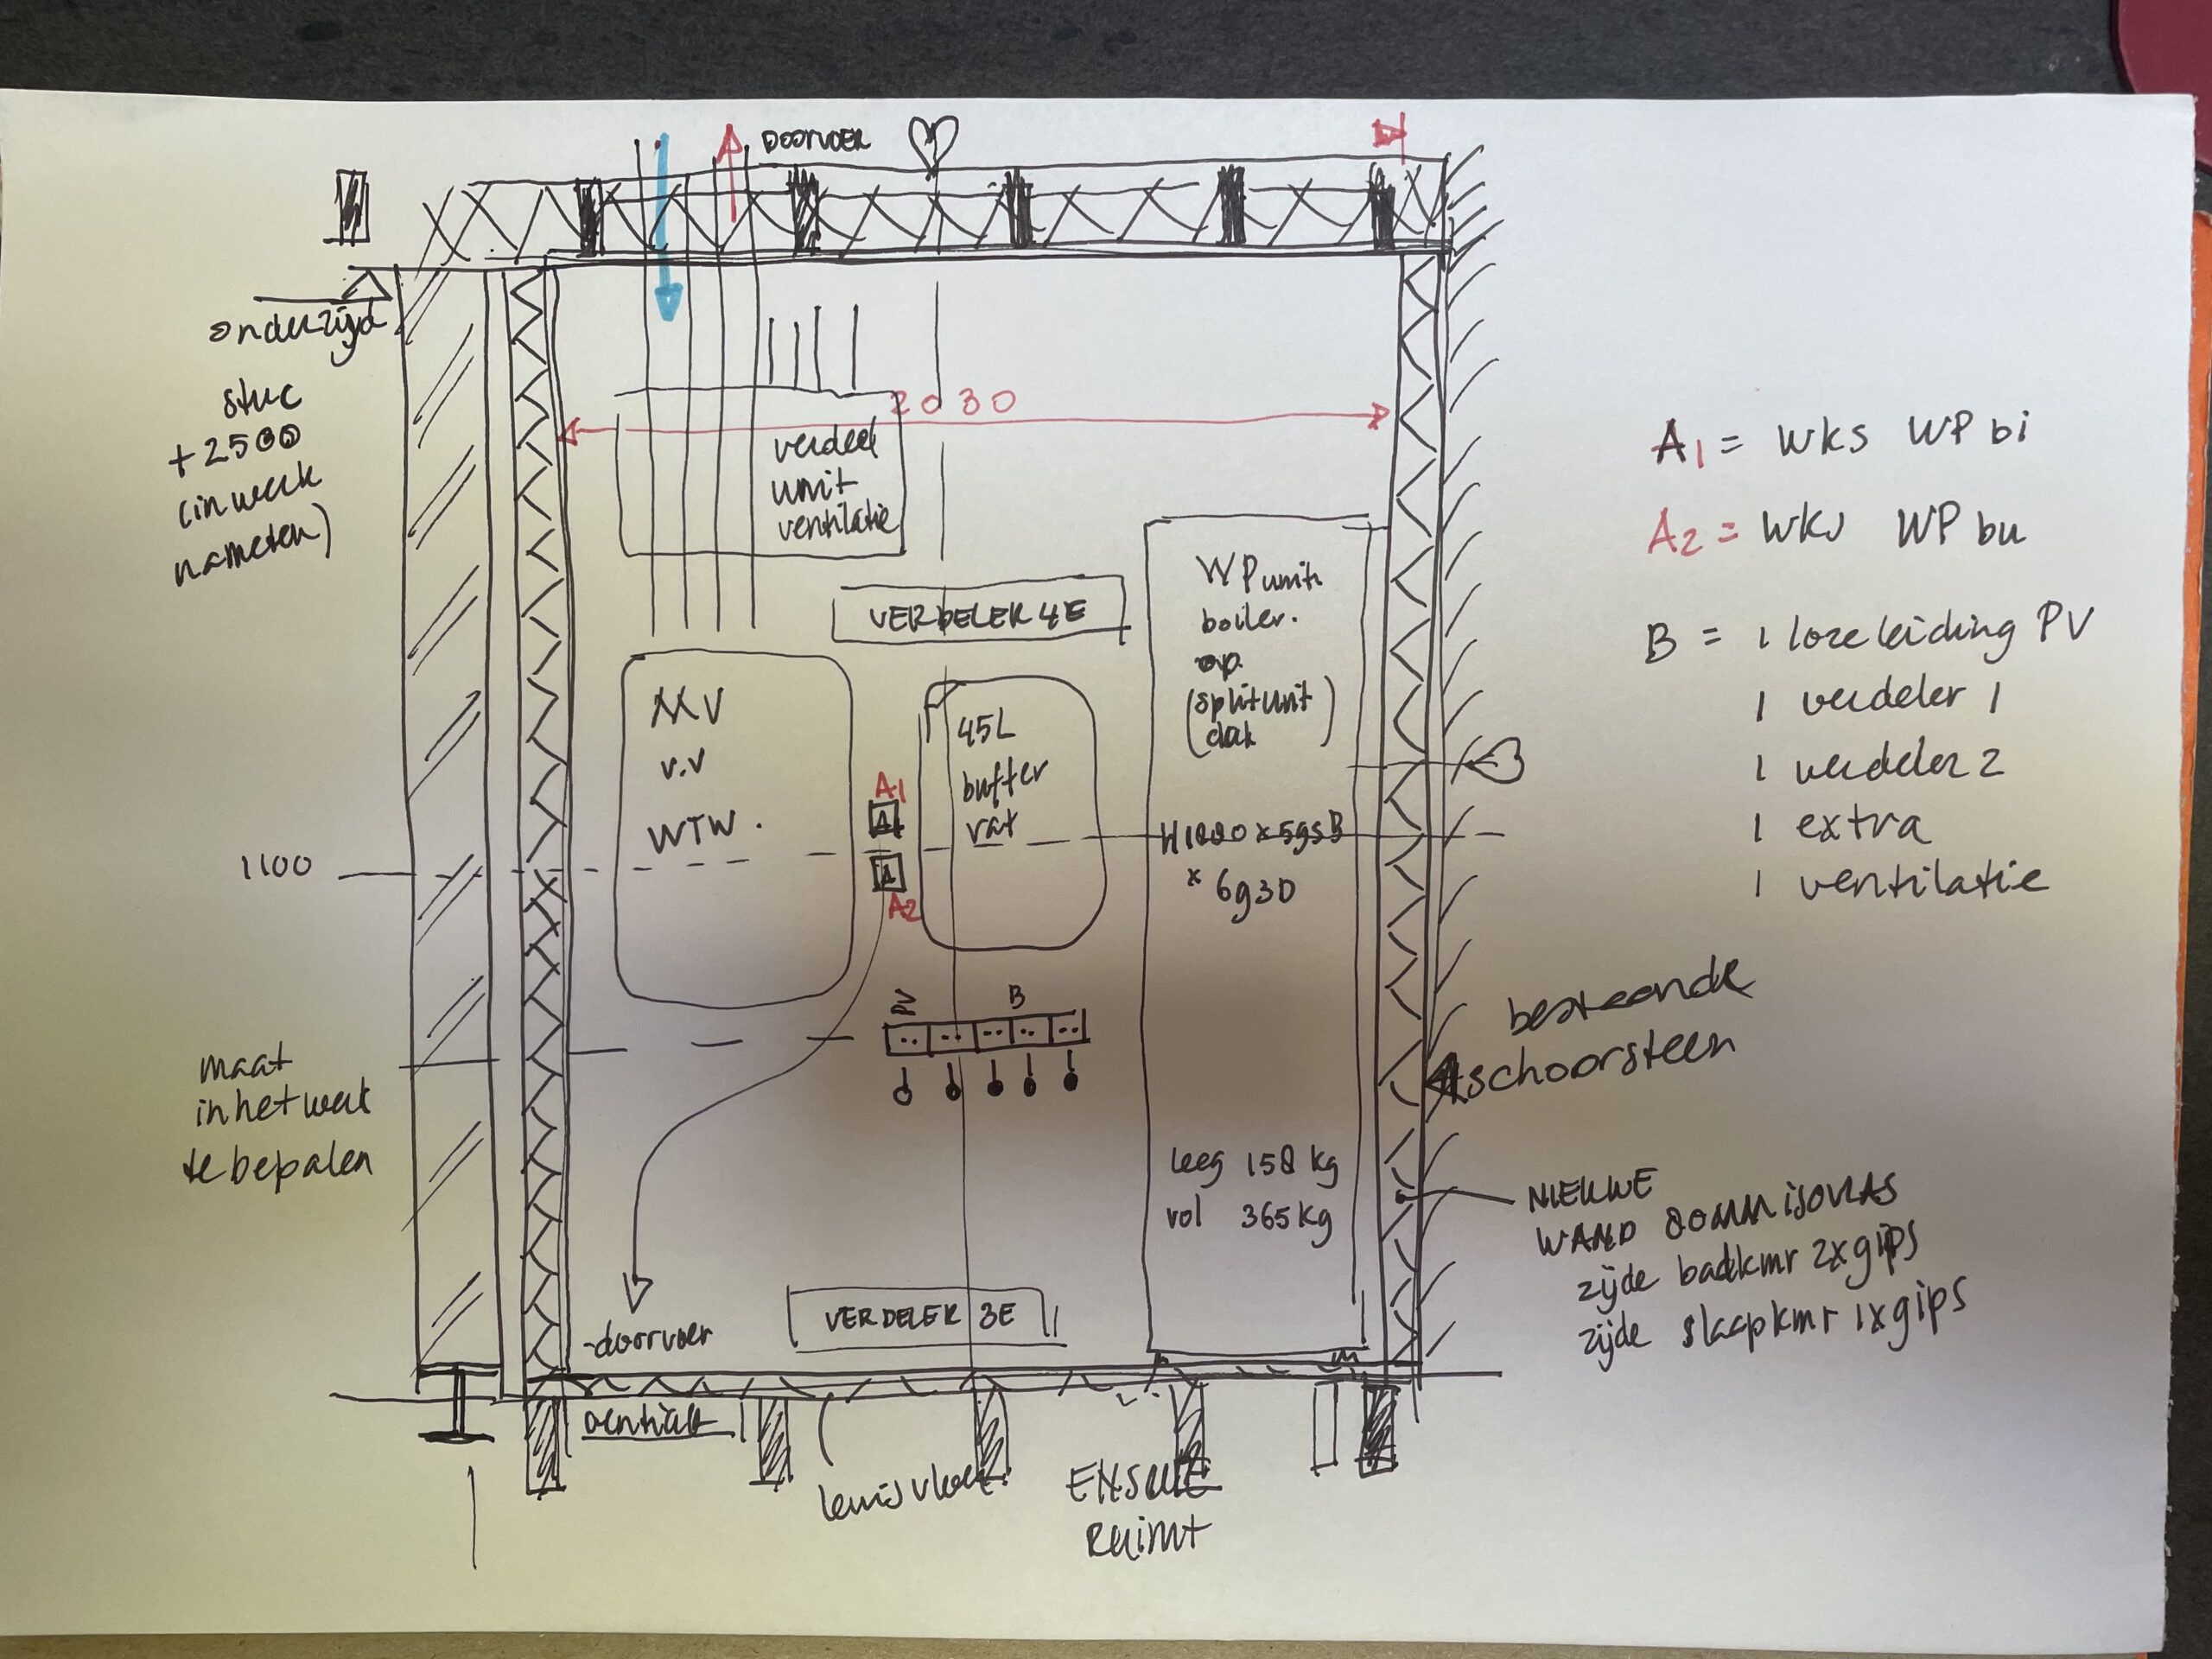 DOORVOER
onderzijd
stuc
+2500
(in werk
nameten)
2030
verdeel
unit
ventilatie
VERDELER 4E
WP unit
boiler.
op.
(splitunit)
dak
MV
v.v
WTW.
45L
buffer
vat
A1
A
A
A2
1100
x 6930
B
maat
in het werk
te bepalen
leeg 158 kg
vol 365 kg
VERDELER 3E
-doorvoer
lewisvloer
ENSUITE
RUIMT
A1 = wks WP bi
A2 = wks WP bu
B = 1 loze leiding PV
1 verdeler 1
1 verdeler 2
1 extra
1 ventilatie
bestaande
schoorsteen
NIEUWE
WAND 80mm isovlas
zijde badkmr 2x gips
zijde slaapkmr 1x gips